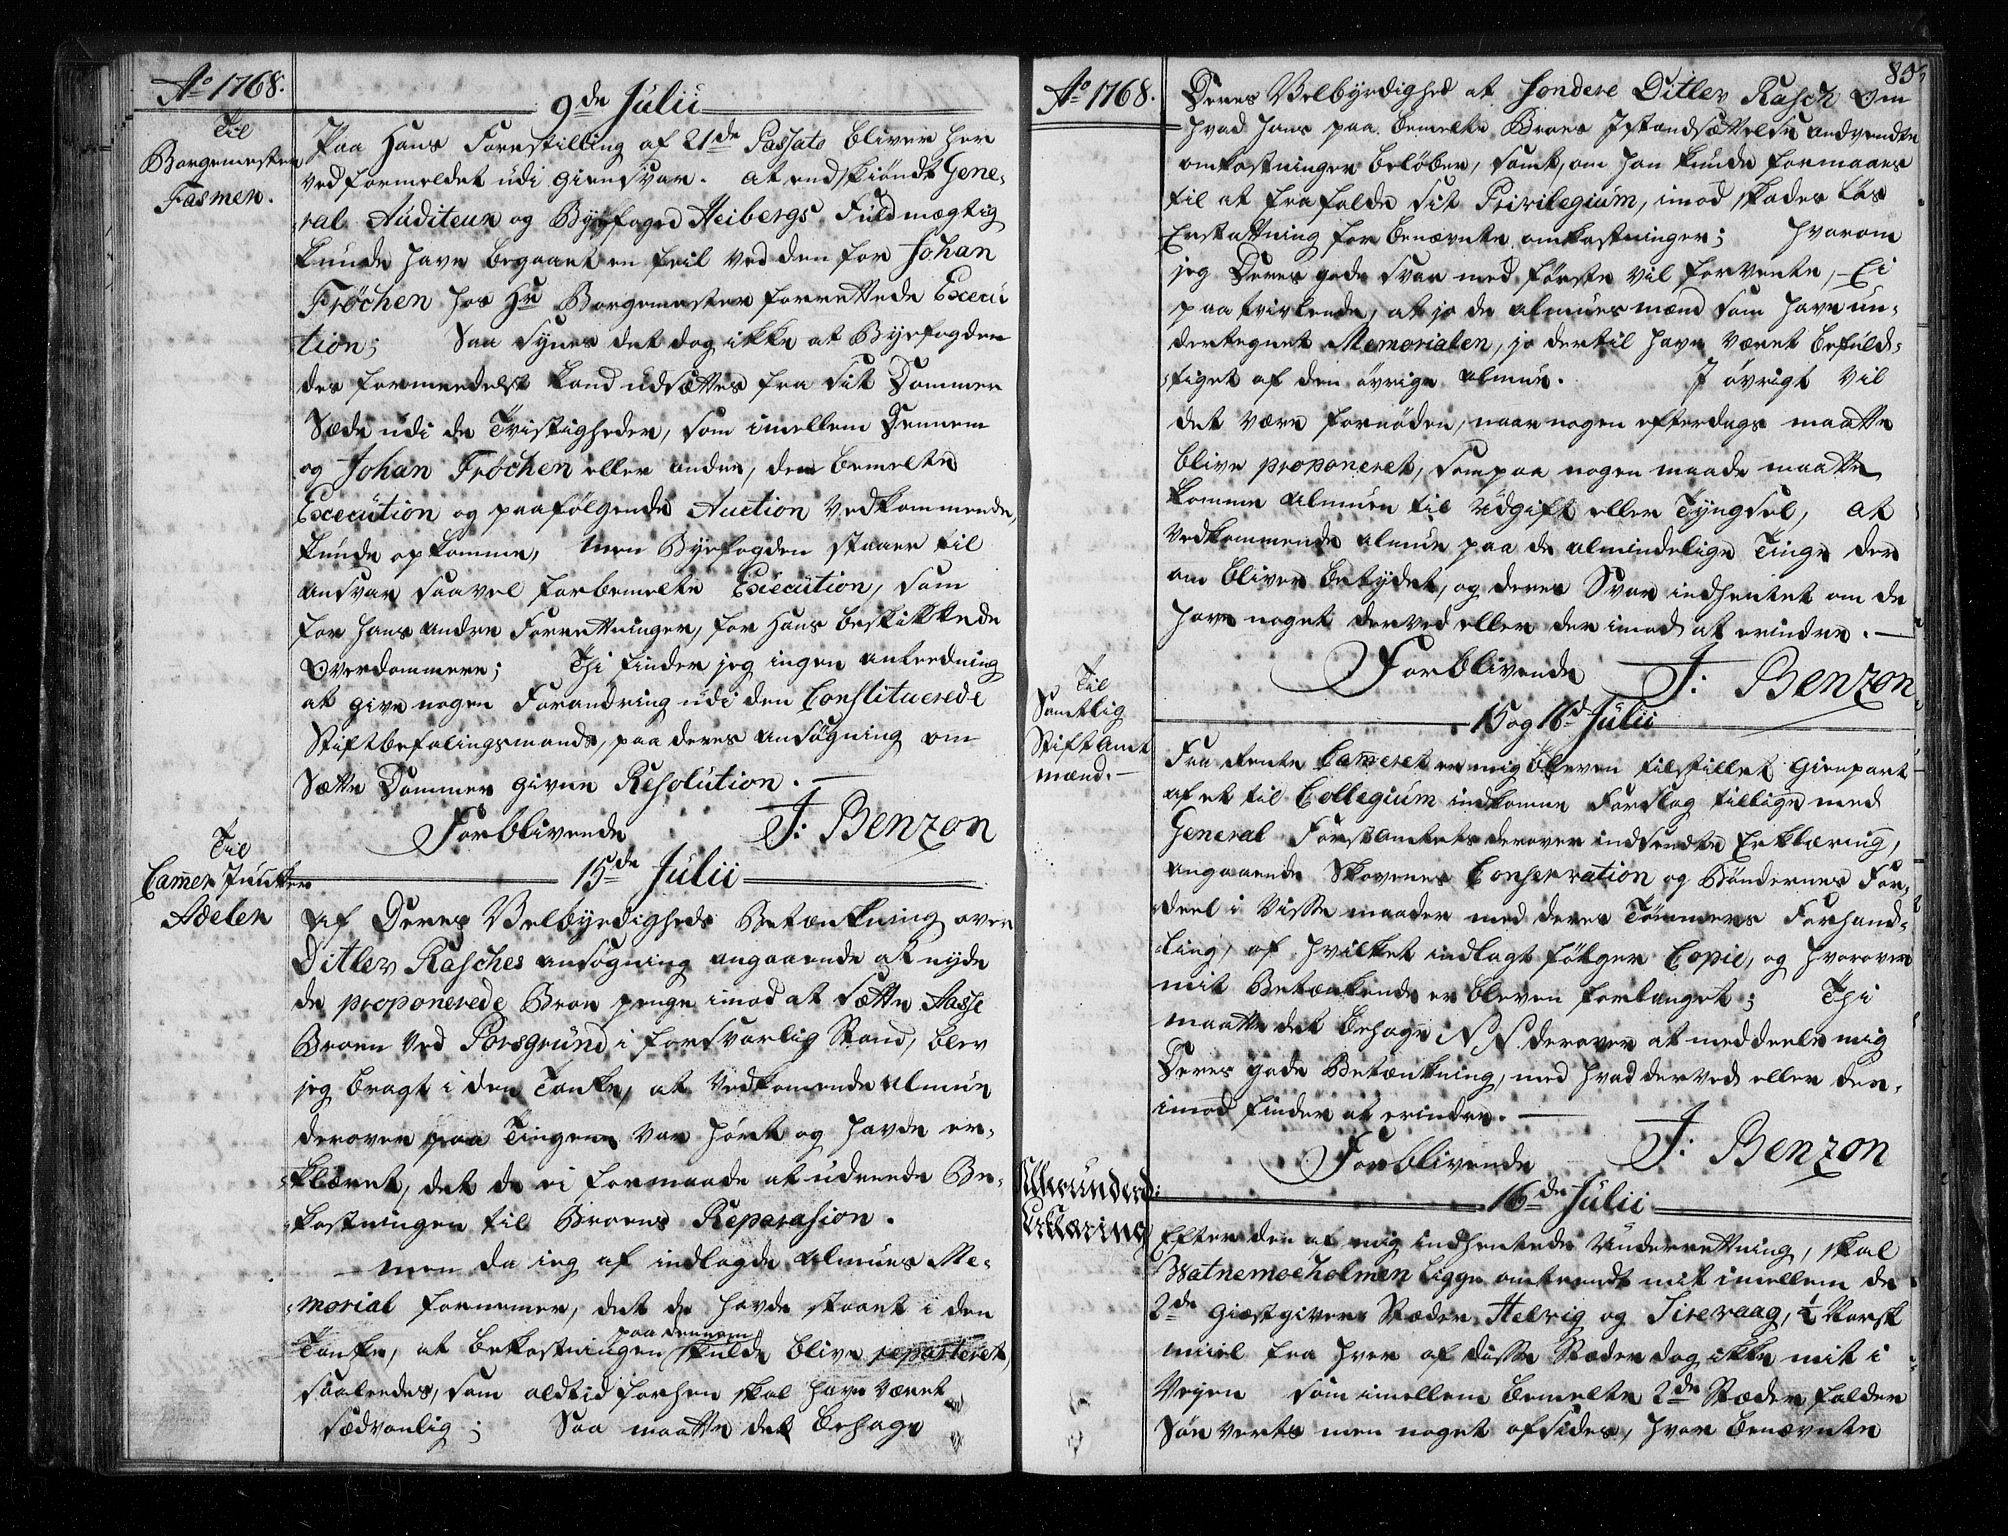 Ao 1768.
9de Julii
Til
Borgemester
Fasmer.
Paa Hans Forestilling af 21de Passato bliver her
ved formeldet udi giensvar. At endskiöndt Gene-
ral Auditeur og Byefoged Heibergs Fuldmægtig
kunde have begaaet en feil ved den for Johan
Fröchen hos Hr Borgemester forrettede Execu
tion; Saa synes det dog ikke at Byefogden
des formedelst kand udsættes fra sit Dommer
Sæde udi de Tvistigheder, som imellem Dennem
og Johan Fröchen eller andre, den bemelte
Execution og paafölgende Auction vedkommende,
kunde opkomme, men Byefogden staaer til
ansvar saavel forbemelte Execution, som
for hans andre Forretninger, for Hans beskikkede
Overdommere; Thi finder jeg ingen anleedning
at give nogen Forandring udi den Constituerede
Stiftbefalingsmands, paa deres ansögning om
Sætte Dommer givne Resolution.
Forblivende J: Benzon
15de Julii
Til
Camer Juncker
Adeler
Af Deres Velbyrdigheds Betænkning over
Ditlev Rasches ansögning angaaende at nyde
de proponerede Broe penge imod at sætte Aasse
Broen ved Porsgrund i forsvarlig Stand, blev
jeg bragt i den Tanke, at vedkomende almue
derover paa Tingene var hört og havde er-
klæret, det de ei formaade at udreede Be-
kostningen til Broens Reparasion.
men da ieg af indlagde Almues Me-
morial fornemer, det de havde staaet i den
Tanke, at bekostningen paa dennem skulde blive reparteret
saaledes, som altid forhen skal have været
sædvanlig; Saa maatte det behage
Ao 1768.
85,
Deres Velbyrdighed at sondere Ditlev Rasch om
hvad hans paa bemelte Broes Istandsættelse anvendte
omkostninger belöber, samt, om han kunde formaaes
til at frafalde sit Privilegium, imod skades lös
Erstattning for benævnte omkostninger; hvorom
jeg Deres gode svar med förste vil forvente, Ei
paatvivlende, at jo de almues mænd som have un-
dertegnet Memorialen, jo dertil have været befuld-
tiget af den övrige almue. I övrigt vil
det være fornöden, naar noget efterdags maatte
blive proponeret, som paa nogen maade maatte
komme almuen til Udgift eller Tyngsel, at
vedkommende almue paa de almindelige Tinge der
om bliver betydet, og deres Svar indhentet om de
have noget derved eller derimod at erindre.
Forblivende J: Benzon
15 og 16de Julii
Til
Samtlig
Stift Amt
mænd.
Fra Rente Cameret er mig bleven tilstillet Gienpart
af et til Collegium indkomne Forslag tillige med
General Forstamtets derover indsendte Erklæring,
angaaende Skovenes Conservation og Böndernes For-
deel i visse maader med deres Tömmers Forhand-
ling, af hvilket indlagt fölger Copie, og hvorover
mit Betænkende er bleven forlanget; Thi
maatte det behage N.N. derover at meddeele mig
Deres gode Betænkning, med hvad derved eller der-
imod finder at erindre.
Forblivende J: Benzon
16de Julii
Allerunderd:
Erklæring
Efter den af mig indhentede Underrettning, skal
Watnemoeholmen ligge omtrendt mit imellem de
2de Giæstgiver Stæder Helvig og Sirevaag, 1/4 Norsk
miil fra hver af disse Stæder dog ikke mit i
Veyen som imellem bemelte 2de Stæder falder
Sönverts men noget afsides, hvor benævnte